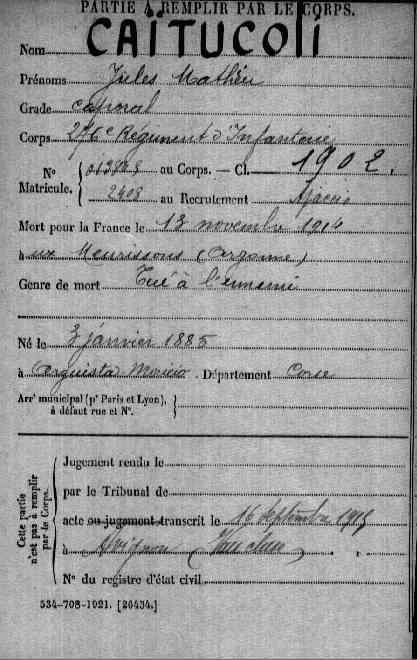 PARTIE À REMPLIR PAR LE CORPS.
Nom CAÏTUCOLI
Prénoms Jules Mathieu
Grade caporal
Corps 276e Régiment d'Infanterie
N° Matricule. { 013848 au Corps. — Cl. 1902.
2408 au Recrutement Ajaccio
Mort pour la France le 13 novembre 1914
à ux Meurissons (Argonne)
Genre de mort Tué à l'ennemi
Né le 3 janvier 1885
à Arguista Moricio Département Corse
Arr' municipal (p' Paris et Lyon), à défaut rue et N°. }
Cette partie n'est pas à remplir par le Corps.
Jugement rendu le
par le Tribunal de
acte ou jugement transcrit le 16 septembre 1915
à Avignon (Vaucluse)
N° du registre d'état civil
534-708-1921. [26434.]